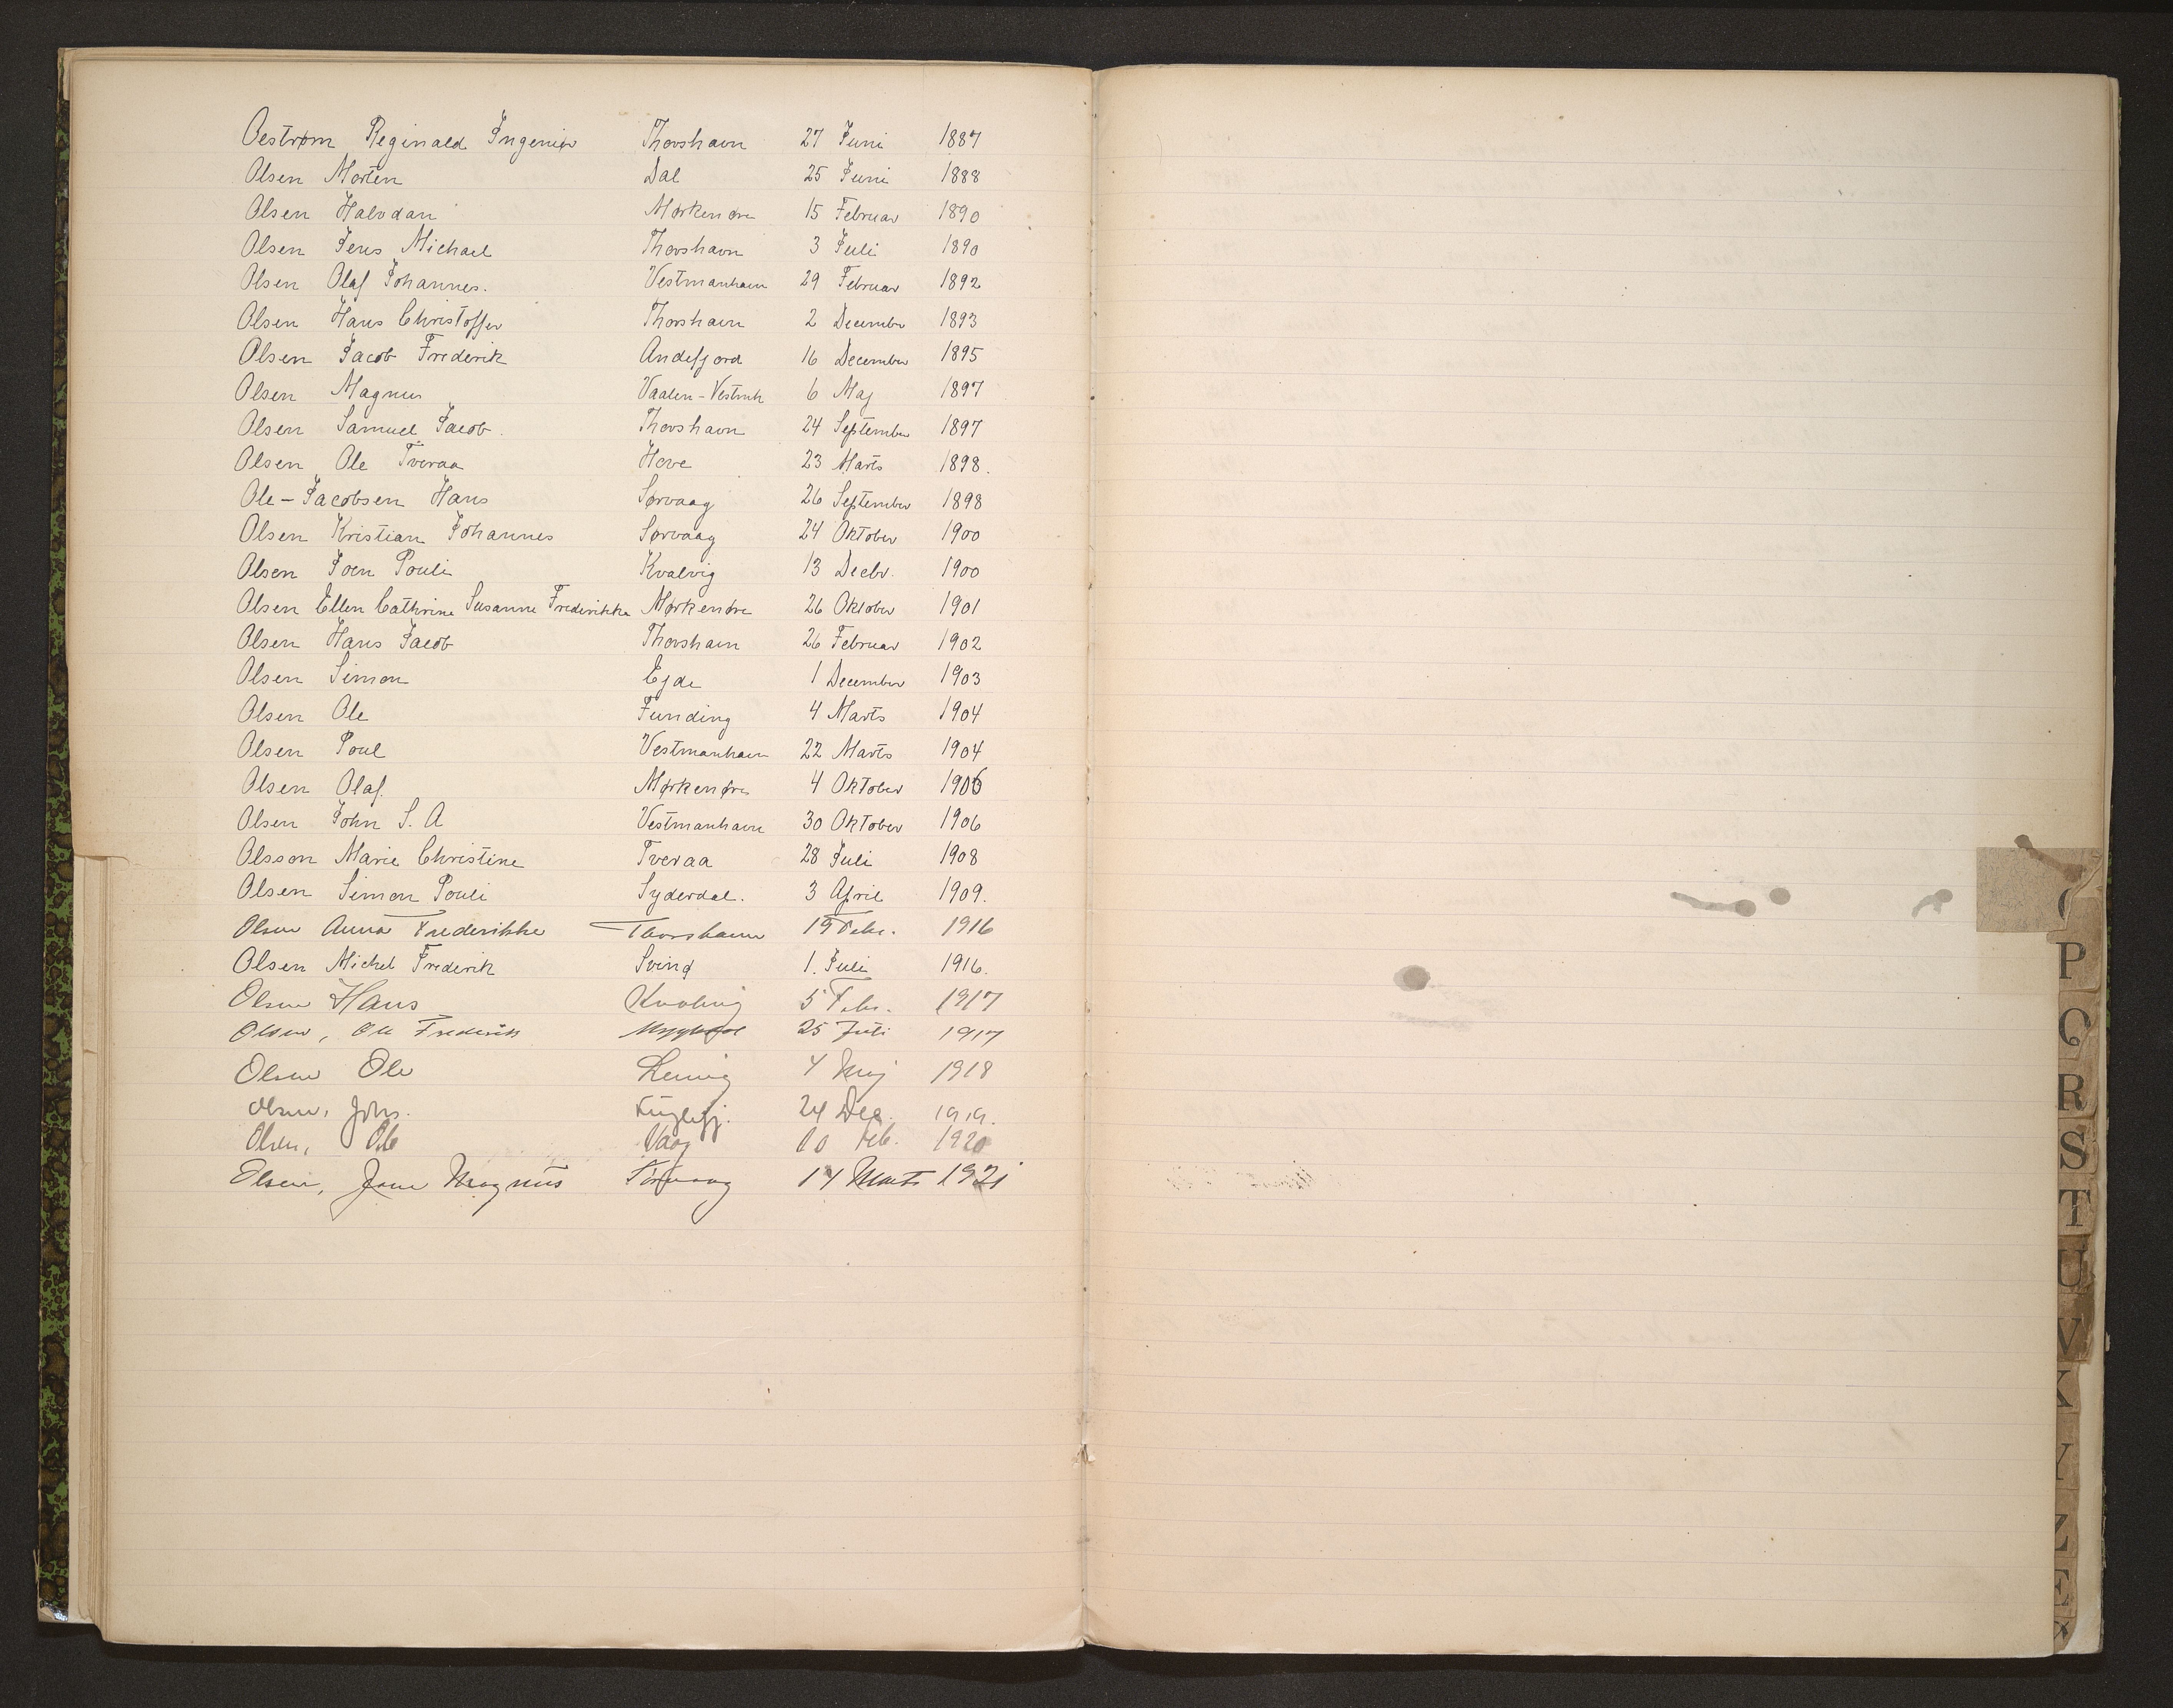 Oestrøm Reginald Ingeniør Thorshavn 27 Juni 1887
Olsen Morten Dal 25 Juni 1888
Olsen Halvdan Mørkenøre 15 Februar 1890
Olsen Jens Michael Thorshavn 3 Juli 1890
Olsen Olaf Johannes. Vestmanhavn 29 Februar 1892
Olsen Hans Christoffer Thorshavn 2 December 1893
Olsen Jacob Frederik Andefjord 16 December 1895
Olsen Magnus Vaalen-Vestmh 6 Maj 1897
Olsen Samuel Jacob. Thorshavn 24 September 1897
Olsen Ole Tveraa Hove 23 Marts 1898.
Ole-Jacobsen Hans Sørvaag 26 September 1898
Olsen Kristian Johannes Sørvaag 24 Oktober 1900
Olsen Joen Pouli Kvalvig 13 Decbr. 1900
Olsen Ellen Cathrine Susanne Frederikke Mørkenøre 26 Oktober 1901
Olsen Hans Jacob Thorshavn 26 Februar 1902
Olsen Simon Ejde 1 December 1903
Olsen Ole Funding 4 Marts 1904
Olsen Poul Vestmanhavn 22 Marts 1904
Olsen Olaf. Mørkenøre 4 Oktober 1906
Olsen John S. A Vestmanhavn 30 Oktober 1906
Olsson Marie Christine Tveraa 28 Juli 1908
Olsen Simon Pouli Syderdal. 3 April 1909.
Olsen Anna Frederikke Thorshavn 19 Febr. 1916
Olsen Michel Frederik Svinø 1. Juli 1916.
Olsen Hans Kvalvig 5 Febr. 1917
Olsen, Ole Frederik 25 Juli 1917
Olsen Ole 4 Maj 1918
Olsen, Johs. Fuglefj. 24 Dec. 1919.
Olsen, Ole Vaag 10 Feb. 1920
Olsen, Magnus Sørvaag 14 Marts 1921
P
Q
R
S
T
U
V
X
Y
Z
Æ